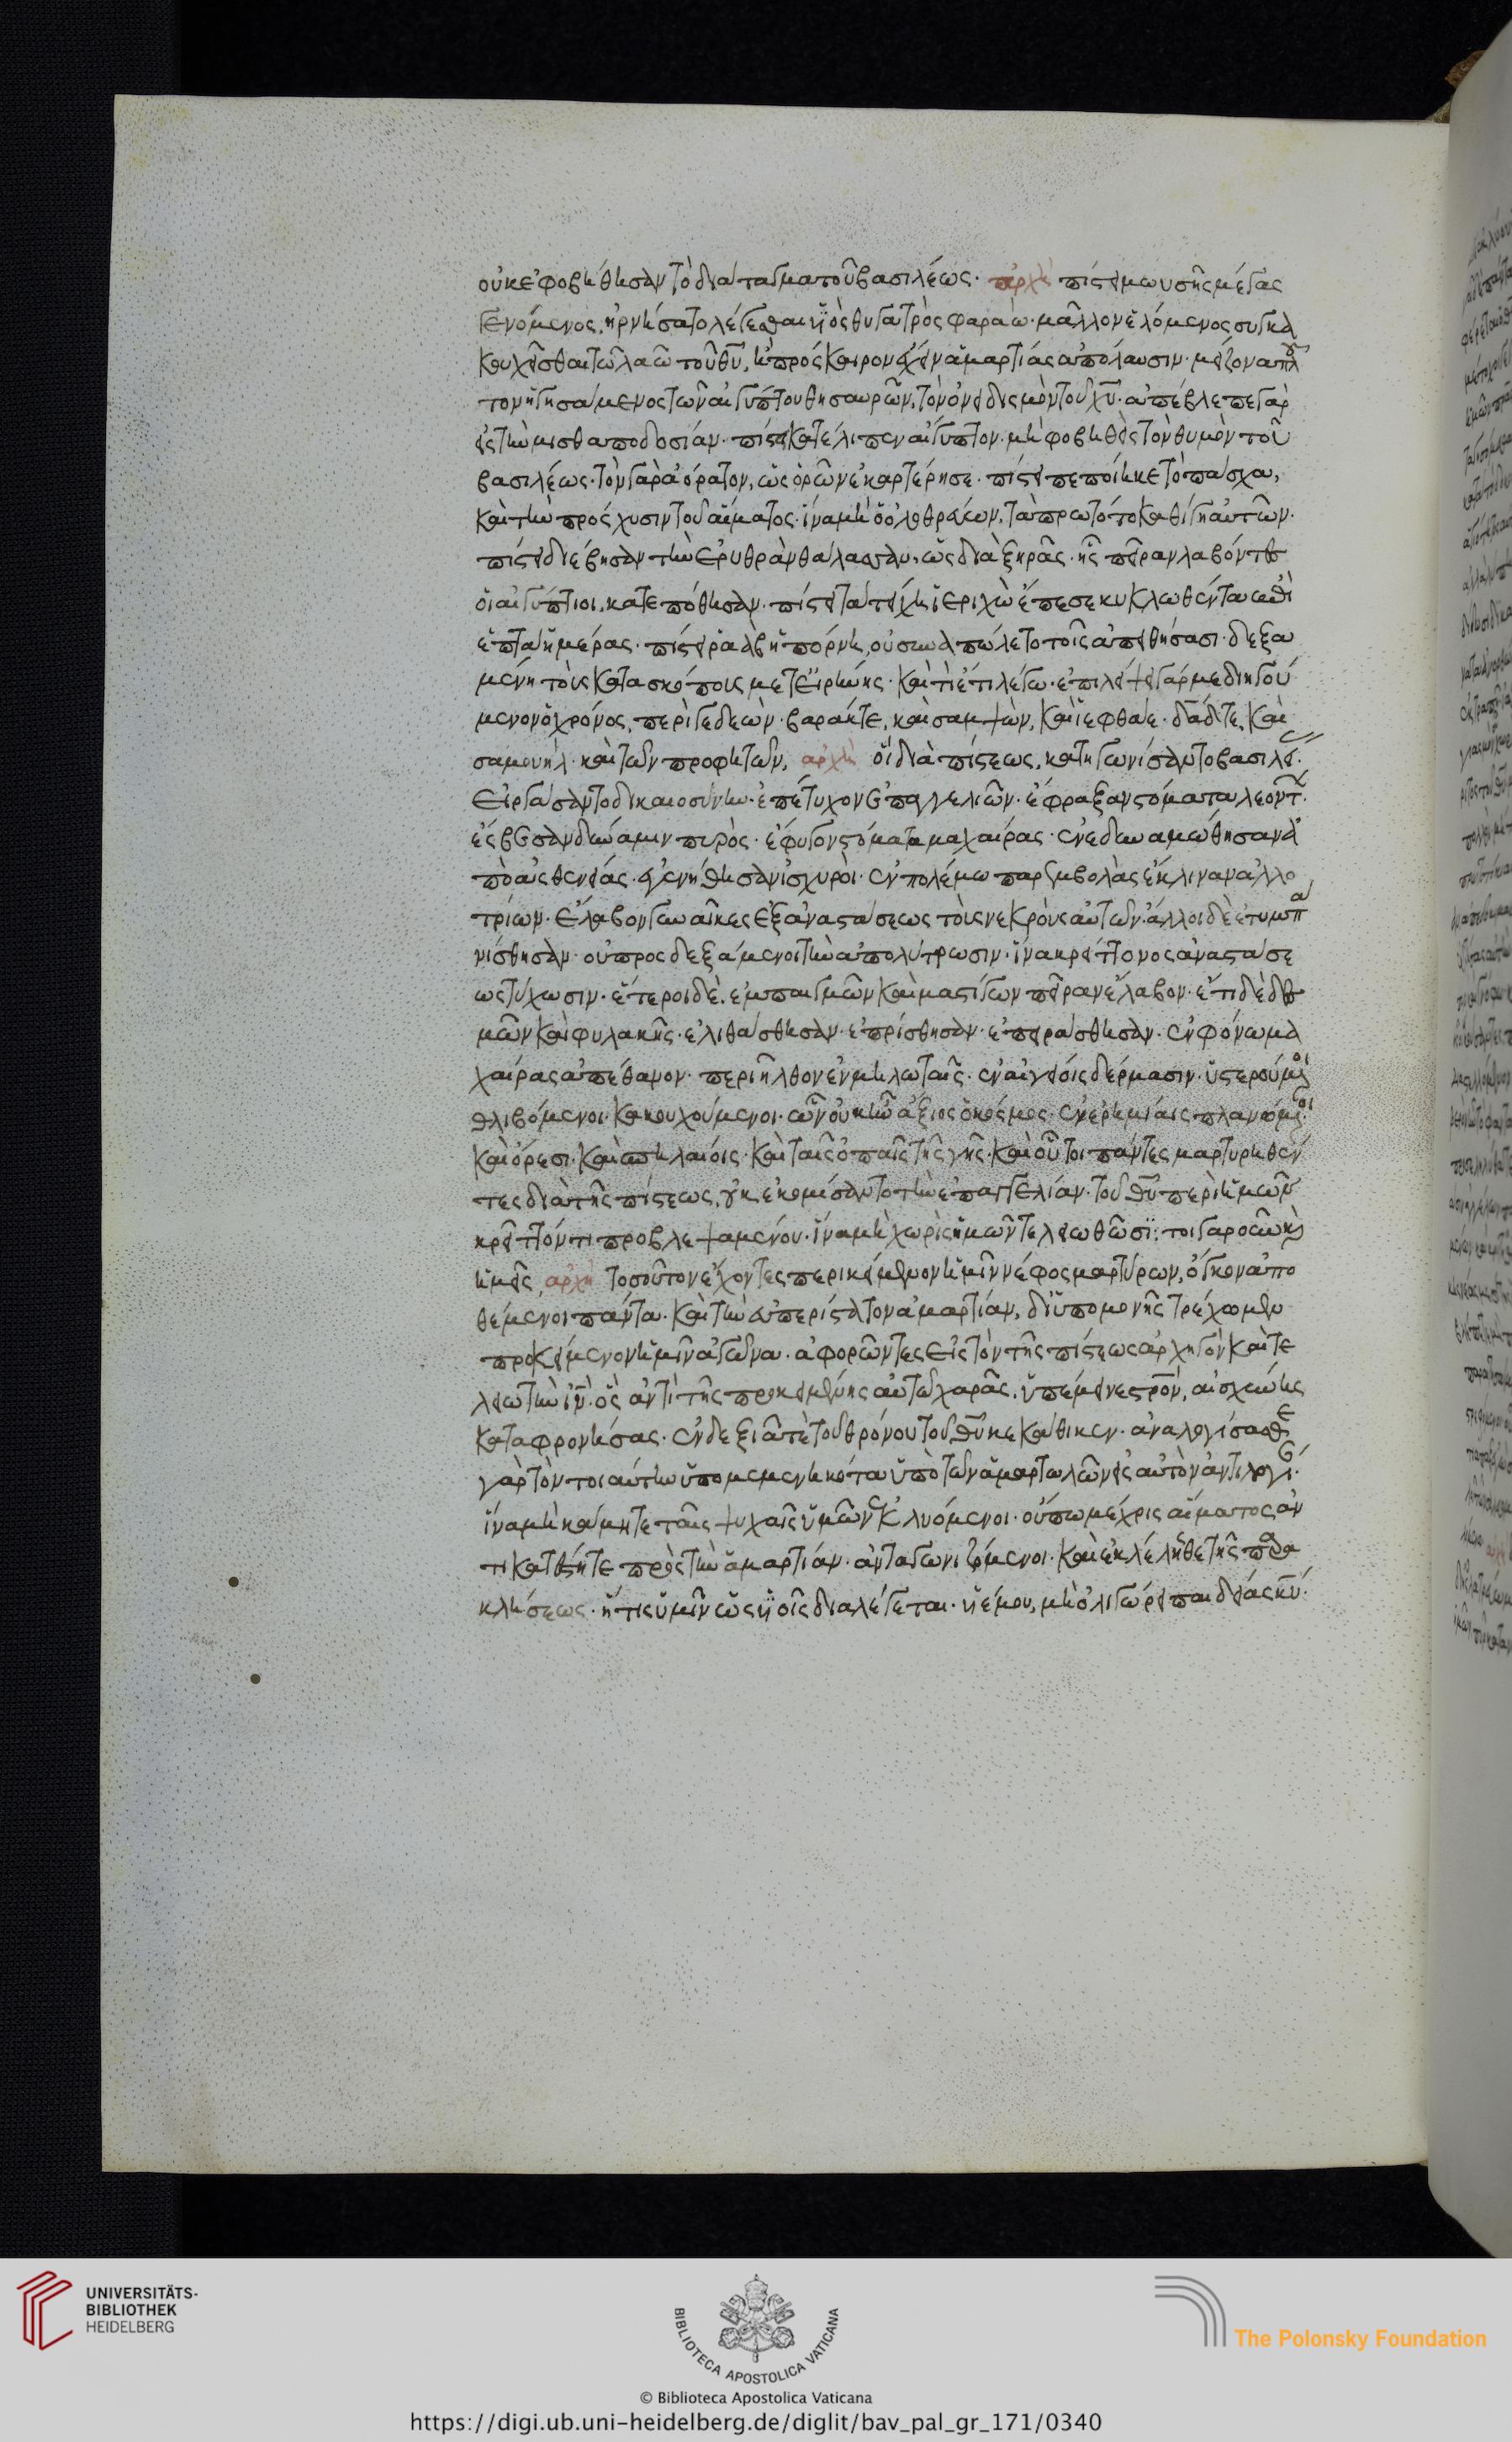 οὐκ ἐφοβήθησαν τὸ διάταγμα τοῦ βασιλέως· ἀρχὴ πίστει μωυσῆς μέγας
γενόμενος, ἠρνήσατο λέγεσθαι υἱὸς θυγατρὸς φαραώ· μᾶλλον ἑλόμενος συγκα
κουχεῖσθαι τῶ λαῶ τοῦ θῦ, ἢ πρόσκαιρον ἔχειν ἁμαρτίας ἀπόλαυσιν· μείζονα πλοῦ
τον ἡγησάμενος τῶν αἰγύπτου θησαυρῶν, τὸν ὀνειδισμὸν τοῦ χῦ· ἀπέβλεπε γὰρ
εἰς τὴν μισθαποδοσίαν· πίστει κατέλιπεν αἴγυπτον· μὴ φοβηθεὶς τὸν θυμὸν τοῦ
βασιλέως· τὸν γὰρ ἀόρατον, ὡς ὁρῶν ἐκαρτέρησε· πίστει πεποίηκε τὸ πάσχα,
καὶ τὴν πρόσχυσιν τοῦ αἵματος· ἵνα μὴ ὁ ὀλοθρεύων, τὰ πρωτότοκα θίγη αὐτῶν·
πίστει διέβησαν τὴν ἐρυθρὰν θάλασσαν, ὡς διὰ ξηρᾶς· ἧς πεῖραν λαβόντες
οἱ αἰγύπτιοι, κατεπόθησαν· πίστει τὰ τείχη ἱεριχὼ ἔπεσε κυκλωθέντα ἐπὶ
ἑπτὰ ἡμέρας· πίστει ῥαὰβ ἡ πόρνη, οὐ συναπώλετο τοῖς ἀπειθήσασι· δεξα
μένη τοὺς κατασκόπους μετ εἰρήνης· καὶ τί ἔτι λέγω· ἐπιλείψει γάρ με διηγού
μενον ὁ χρόνος, περὶ γεδεὼν· βαράκ τε, καὶ σαμψὼν, καὶ ἰεφθάε· δᾱδ τε, καὶ
σαμουήλ· καὶ τῶν προφητῶν, ἀρχὴ οἳ διὰ πίστεως, κατηγωνίσαντο βασιλεί·
εἰργάσαντο δικαιοσύνην· ἐπέτυχον ἐπαγγελιῶν· ἔφραξαν στόματα λεόντ·
ἔσβεσαν δύναμιν πυρὸς· ἔφυγον στόματα μαχαίρας· ἐνεδυναμώθησαν ἀ
πὸ ἀσθενείας· ἐγενήθησαν ἰσχυροὶ· ἐν πολέμω παρεμβολὰς ἔκλιναν ἀλλο
τρίων· ἔλαβον γυναῖκες ἐξ ἀναστάσεως τοὺς νεκροὺς αὐτῶν· ἄλλοι δὲ ἐτυμπα
νίσθησαν· οὐ προσδεξάμενοι τὴν ἀπολύτρωσιν· ἵνα κρείττονος ἀναστάσε
ως τύχωσιν· ἕτεροι δὲ, ἐμπαιγμῶν καὶ μαστίγων πεῖραν ἔλαβον· ἔτι δὲ δες
μῶν καὶ φυλακῆς· ἐλιθάσθησαν· ἐπρίσθησαν· ἐπειράσθησαν· ἐν φόνω μα
χαίρας ἀπέθανον· περιῆλθον ἐν μηλωταῖς· ἐν αἰγείοις δέρμασιν· ὑστερούμενοι
θλιβόμενοι· κακουχούμενοι· ὧν οὐκ ἦν ἄξιος ὁ κόσμος· ἐν ἐρημίαις πλανώμενοι·
καὶ ὄρεσι· καὶ σπηλαίοις· καὶ ταῖς ὀπαῖς τῆς γῆς· καὶ οὗτοι πάντες μαρτυρηθέν
τες διὰ τῆς πίστεως, οὐκ ἐκομίσαντο τὴν ἐπαγγελίαν· τοῦ θῦ περὶ ἡμῶν
κρεῖττόν τι προβλεψαμένου· ἵνα μὴ χωρὶς ἡμῶν τελειωθῶσι· τοιγαροῦν καὶ
ἡμεῖς, ἀρχὴ τοσοῦτον ἔχοντες περικείμενον ἡμῖν νέφος μαρτύρων, ὄγκον ἀπο
θέμενοι πάντα· καὶ τὴν εὐπερίστατον ἁμαρτίαν, δι ὑπομονῆς τρέχωμεν
προκείμενον ἡμῖν ἀγῶνα· ἀφορῶντες εἰς τὸν τῆς πίστεως ἀρχηγὸν καὶ τε
λειωτὴν ἰν· ὃς ἀντὶ τῆς προκειμένης αὐτῶ χαρᾶς, ὑπέμεινε στρον, αἰσχύνης
καταφρονήσας· ἐν δεξιᾶ τε τοῦ θρόνου τοῦ θῦ κεκάθικεν· ἀναλογίσασθε
γὰρ τὸν τοιαύτην ὑπομεμενηκότα ὑπὸ τῶν ἁμαρτωλῶν εἰς αὐτὸν ἀντιλογί·
ἵνα μὴ κάμητε ταῖς ψυχαῖς ὑμῶν ἐκλυόμενοι· οὔπω μέχρις αἵματος ἀν
τικατέστητε πρὸς τὴν ἁμαρτίαν· ἀνταγωνιζόμενοι· καὶ ἐκλέλησθε τῆς παρα
κλήσεως· ἥτις ὑμῖν ὡς υἱοῖς διαλέγεται· υἱέ μου, μὴ ὀλιγώρει παιδείας κυ·
UNIVERSITÄTS-
BIBLIOTHEK
HEIDELBERG
BIBLIOTECA APOSTOLICA VATICANA
The Polonsky Foundation
© Biblioteca Apostolica Vaticana
https://digi.ub.uni-heidelberg.de/diglit/bav_pal_gr_171/0340